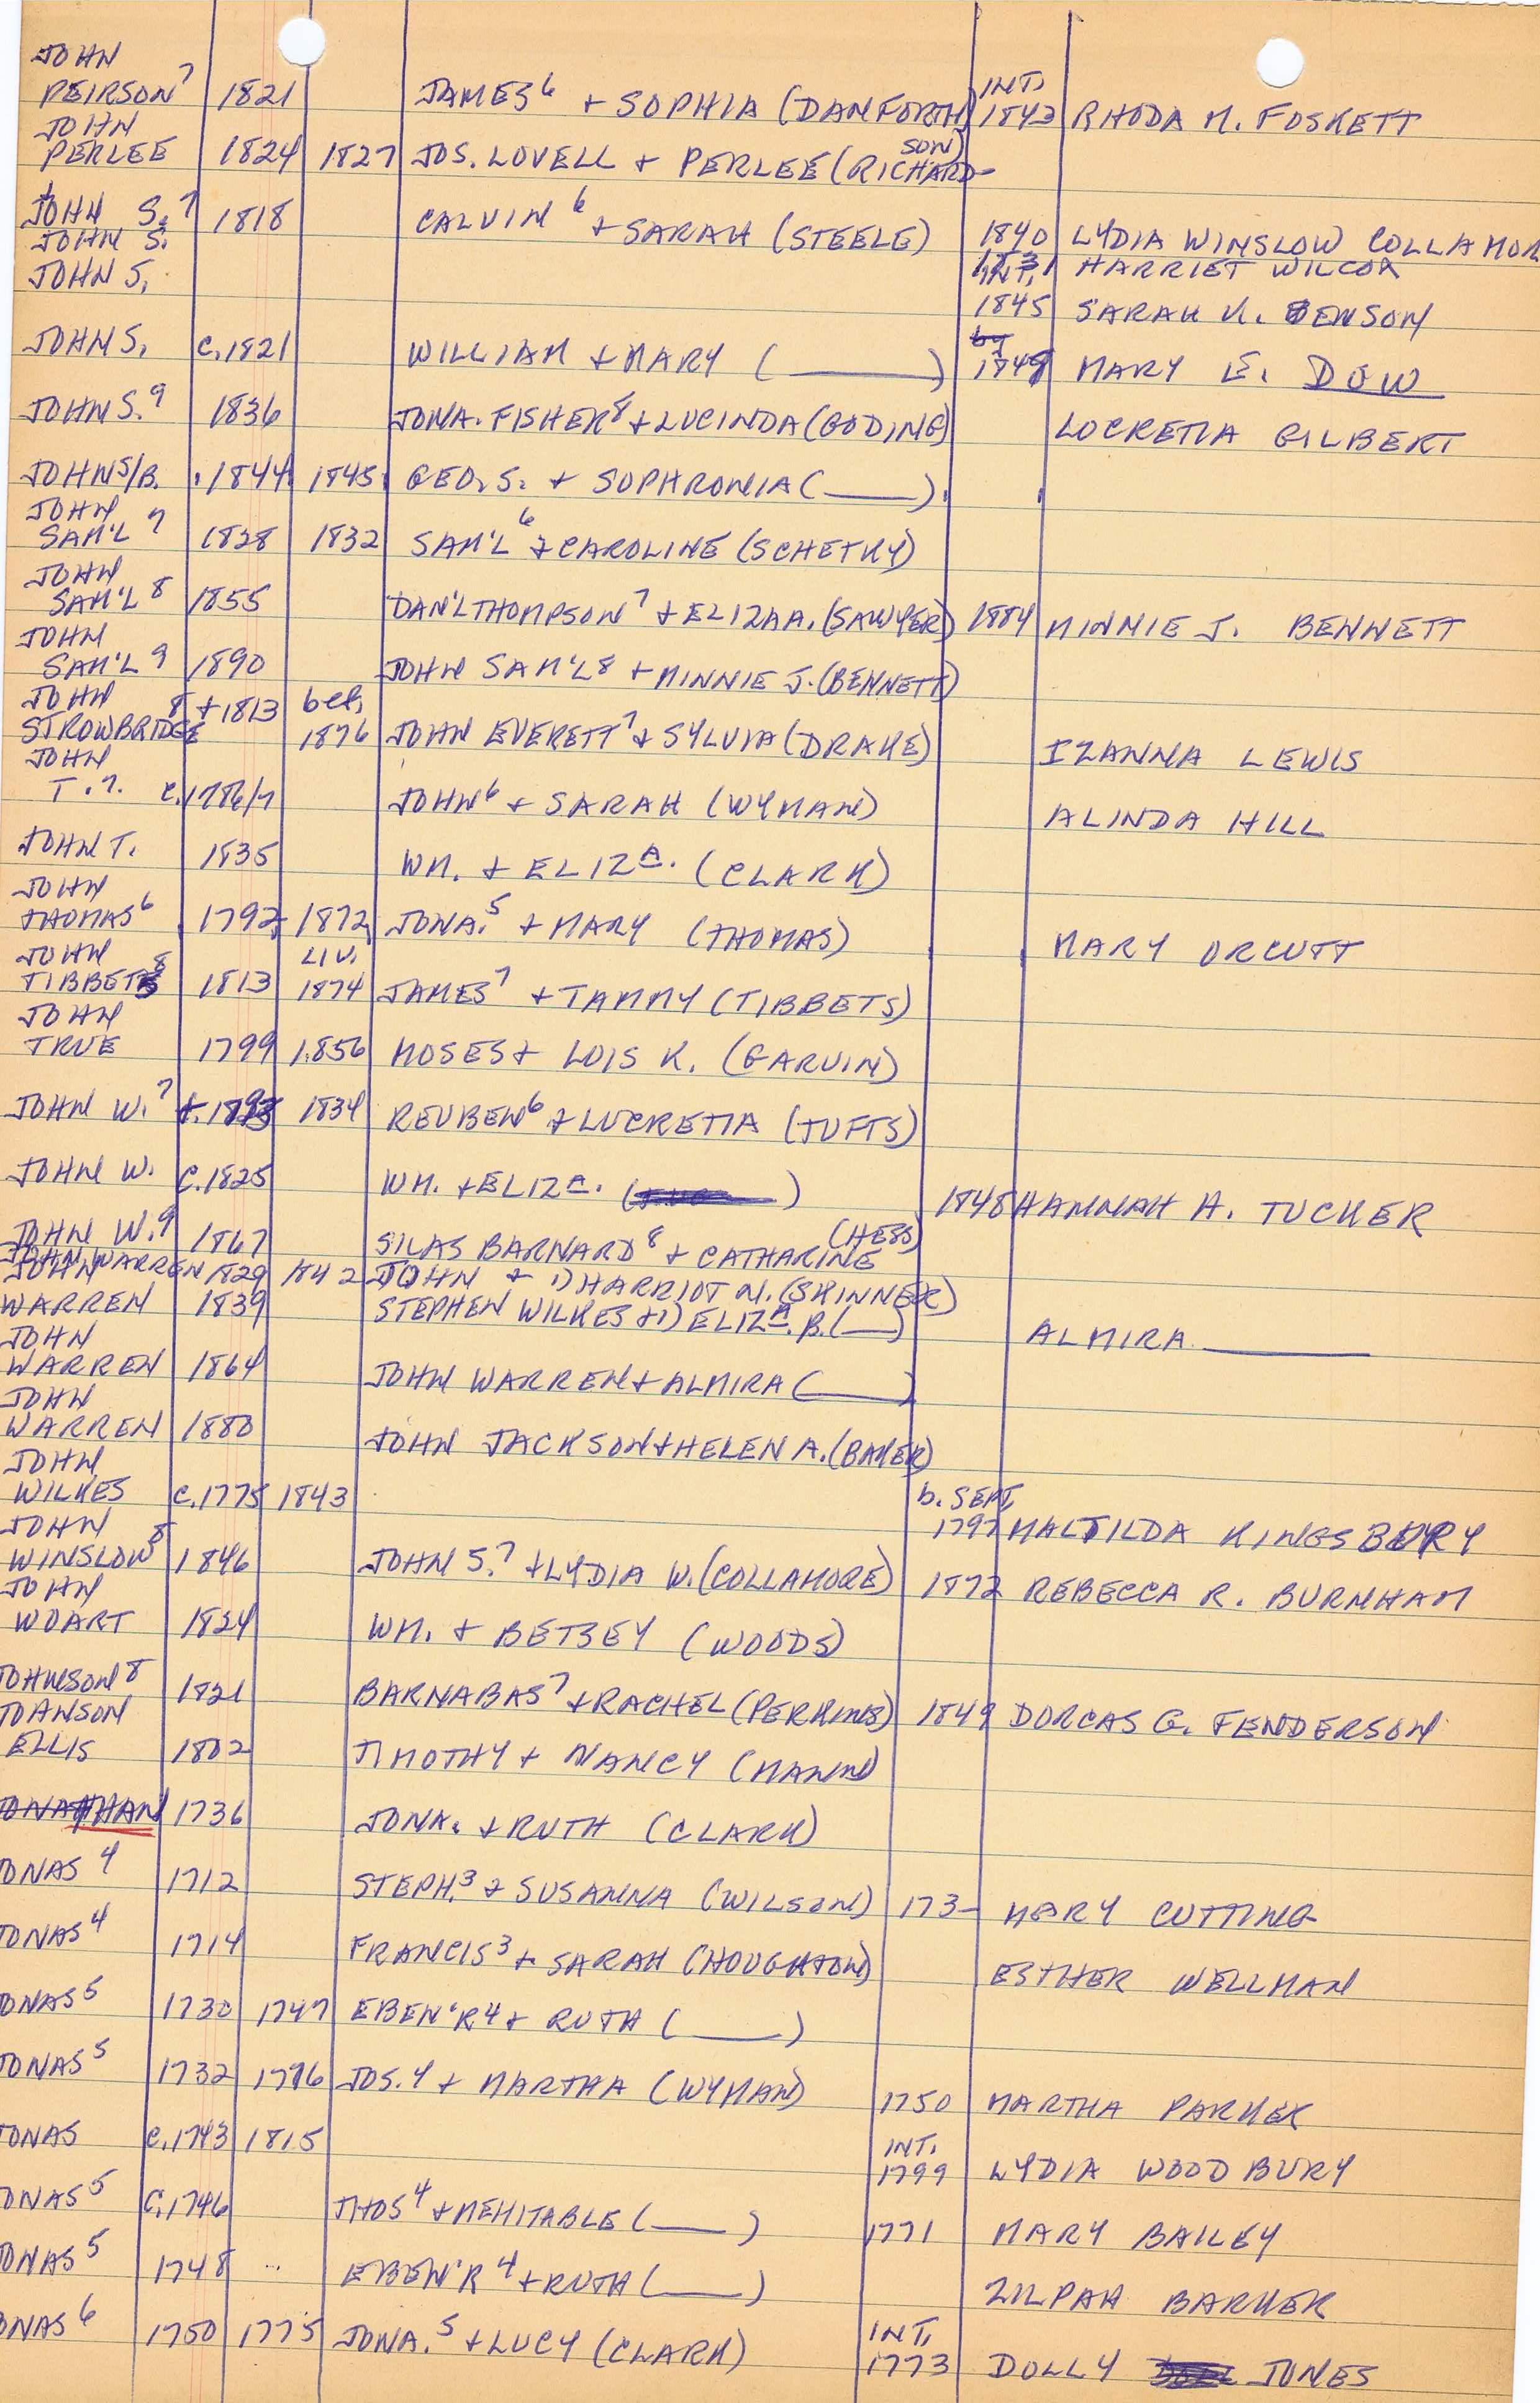 JOHN
PEIRSON⁷ 1821 JAMES⁶ + SOPHIA (DANFORTH) INT. 1843 RHODA M. FOSKETT
JOHN
PERLEE 1824 1827 JOS. LOVELL + PERLEE (RICHARD-SON)
JOHN S.⁷ 1818 CALVIN⁶ + SARAH (STEELE) 1840 LYDIA WINSLOW COLLAMOR
JOHN S. HARRIET WILCOX
JOHN S. INT. 1845 SARAH N. BENSON
JOHN S. c.1821 WILLIAM + MARY ( ____ ) by 1849 MARY E. DOW
JOHN S.⁹ 1836 JONA. FISHER⁸ + LUCINDA (GODING) LUCRETIA GILBERT
JOHN S/B. 1844 1845 GEO. S. + SOPHRONIA ( ____ )
JOHN
SAM'L⁷ 1828 1832 SAM'L⁶ + CAROLINE (SCHETKY)
JOHN
SAM'L⁸ 1855 DAN'L THOMPSON⁷ + ELIZA A. (SAWYER) 1884 MINNIE J. BENNETT
JOHN
SAM'L⁹ 1890 JOHN SAM'L⁸ + MINNIE J. (BENNETT)
JOHN
STROWBRIDGE⁸ +1813 bef. 1876 JOHN EVERETT⁷ + SYLVIA (DRAKE) IZANNA LEWIS
JOHN
T.⁷ c.1786/7 JOHN⁶ + SARAH (WYMAN) ALINDA HILL
JOHN T. 1835 WM. + ELIZA. (CLARK)
JOHN
THOMAS⁶ 1792 1872 JONA.⁵ + MARY (THOMAS) MARY ORCUTT
JOHN
TIBBETS⁸ 1813 LIV. 1874 JAMES⁷ + TAMMY (TIBBETS)
JOHN
TRUE 1799 1856 MOSES + LOIS K. (GARVIN)
JOHN W.⁷ 1834 REUBEN⁶ + LUCRETIA (TUFTS)
JOHN W. c.1825 WM. + ELIZA. ( ) 1848 HANNAH A. TUCKER
JOHN W.⁹ 1867 SILAS BARNARD⁸ + CATHARINE (HESS)
JOHN WARREN 1829 1842 JOHN + 1) HARRIOT N. (SKINNER)
JOHN
WARREN 1839 STEPHEN WILKES + 1) ELIZA. B. ( __ ) ALMIRA ____
JOHN
WARREN 1864 JOHN WARREN + ALMIRA ( ____ )
JOHN
WARREN 1880 JOHN JACKSON + HELEN A. (BAKER)
JOHN
WILKES c.1775 1843 b. SEPT. 1797 MALTILDA KINGSBURY
JOHN
WINSLOW⁸ 1846 JOHN S.⁷ + LYDIA W. (COLLAMORE) 1872 REBECCA R. BURNHAM
JOHN
WOART 1824 WM. + BETSEY (WOODS)
JOHNSON⁸ 1821 BARNABAS⁷ + RACHEL (PERKINS) 1849 DORCAS G. FENDERSON
JOHNSON
ELLIS 1802 TIMOTHY + NANCY (MANN)
JONATHAN 1736 JONA. + RUTH (CLARK)
ONAS⁴ 1712 STEPH.³ + SUSANNA (WILSON) 173- MARY CUTTING
ONAS⁴ 1714 FRANCIS³ + SARAH (HOUGHTON) ESTHER WELLMAN
ONAS⁵ 1730 1747 EBEN'R⁴ + RUTH ( ____ )
ONAS⁵ 1732 1776 JOS.⁴ + MARTHA (WYMAN) 1750 MARTHA PARKER
ONAS c.1743 1815 INT. 1799 LYDIA WOODBURY
ONAS⁵ c.1746 THOS⁴ + MEHITABLE ( ____ ) 1771 MARY BAILEY
ONAS⁵ 1748 EBEN'R⁴ + RUTH ( ____ ) ZILPAH BARKER
ONAS⁶ 1750 1775 JONA.⁵ + LUCY (CLARK) INT. 1773 DOLLY JONES